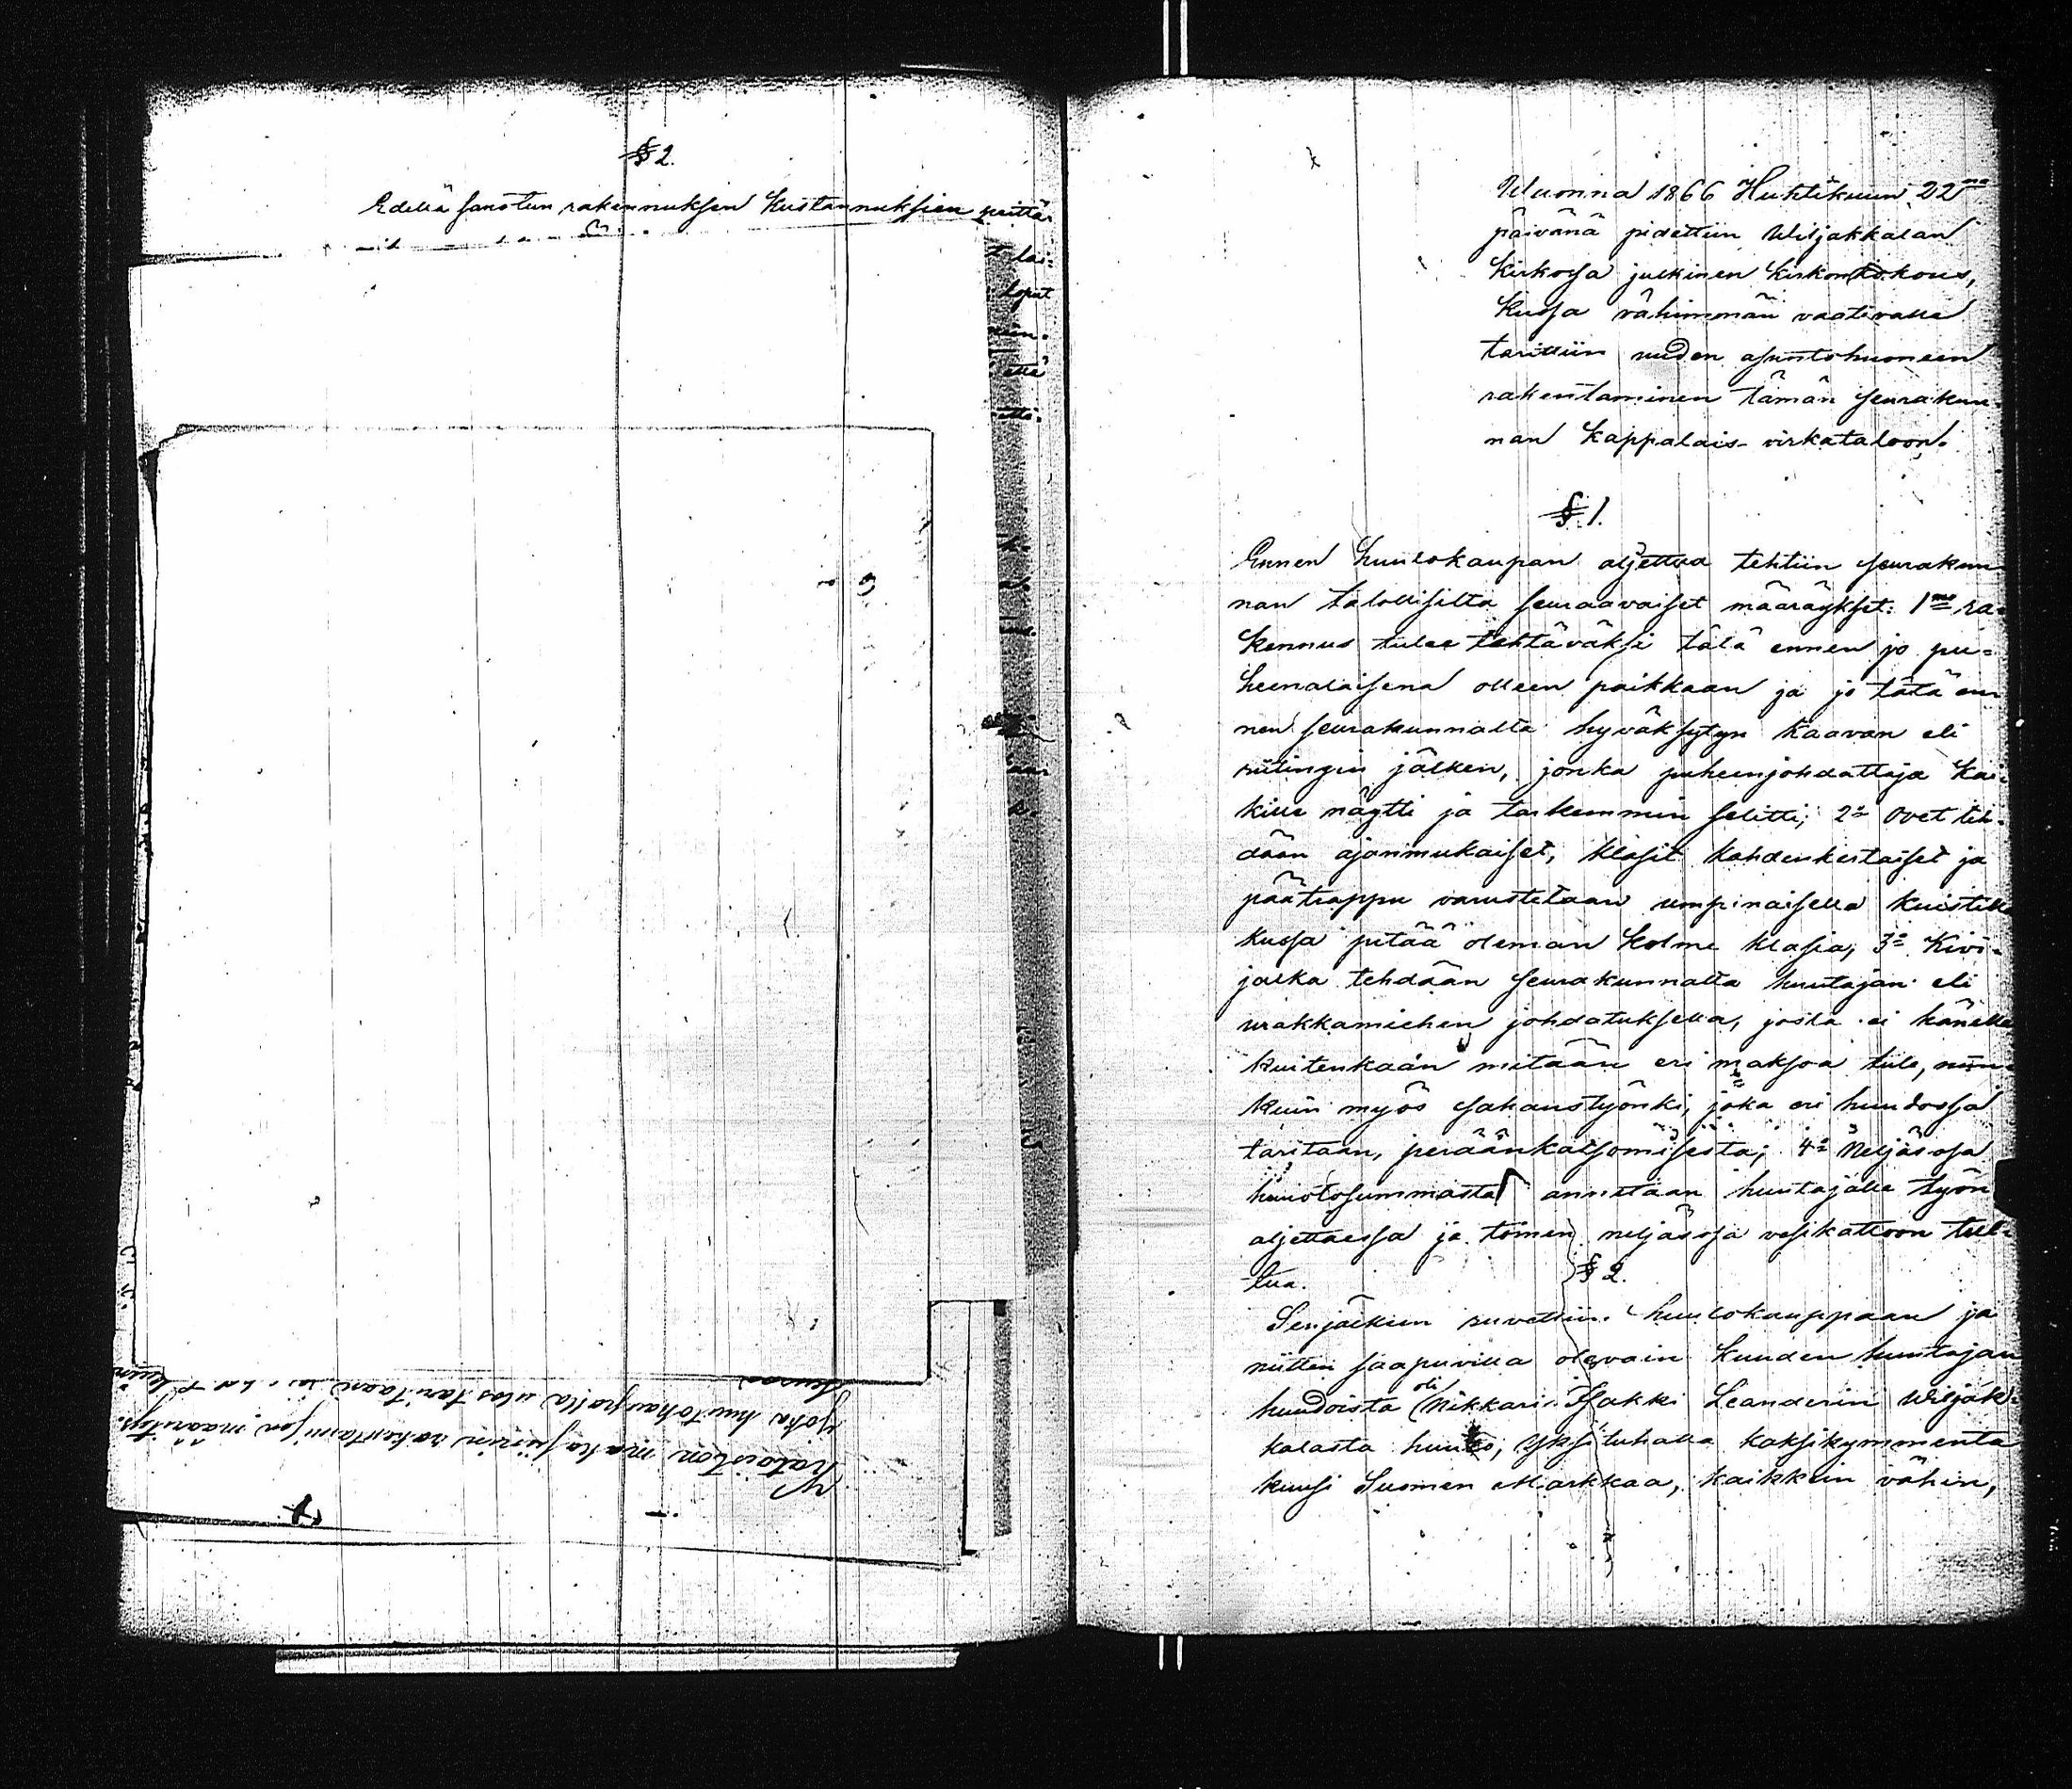 § 2.
Edellä sanotun rakennuksen kustannuksien peittä-
t lai-
loput
ellä
Wuonna 1866 Huhtikuun 22na
päivänä pidettiin Wiljakkalan
kirkossa julkinen kirkonkokous,
kussa vähimmän vaativalle
tarittiin uuden asuntohuoneen
rakentaminen tämän seurakun-
nan kappalais-virkataloon.
§ 1.
Ennen huutokaupan aljettua tehtiin seurakun-
nan talollisilta seuraavaiset määräykset: 1mo ra-
kennus tulee tehtäväksi tätä ennen jo pu-
heenalaisena olleen paikkaan ja jo tätä en-
nen seurakunnalta hyväksytyn kaavan eli
riitingin jälken, jonka puheenjohdattaja kai-
kille näytti ja tarkemmin selitti; 2o Ovet teh-
dään ajanmukaiset, klasit kahdenkertaiset ja
päätrappu varustetaan umpinaisella kuistilla
kussa pitää oleman kolme klasia; 3o Kivi-
jalka tehdään seurakunnalta huutajan eli
urakkamiehen johdatuksella, josta ei hänelle
kuitenkaan mitään eri maksoa tule, niin-
kuin myös sahaustyönki, joka eri huudossa
taritaan, peräänkatsomisesta; 4o Neljäsosa
huutosummasta annetaan huutajalle työn
aljettaessa ja toinen neljäsosa vesikattoon tul-
tua.
§ 2.
Senjälkeen ruvettiin huutokauppaan ja
niitten saapuvilla olevain kuuden huutajan
huudoista oli Nikkari Isakki Leanderin Wiljak-
kalasta huuto, yksituhatta kaksikymmentä
kuusi Suomen Markkaa, kaikkein vähin,
Wiljakkalan makasiinin rakentamisen määräys,
joka huutokaupalla ulos taritaan